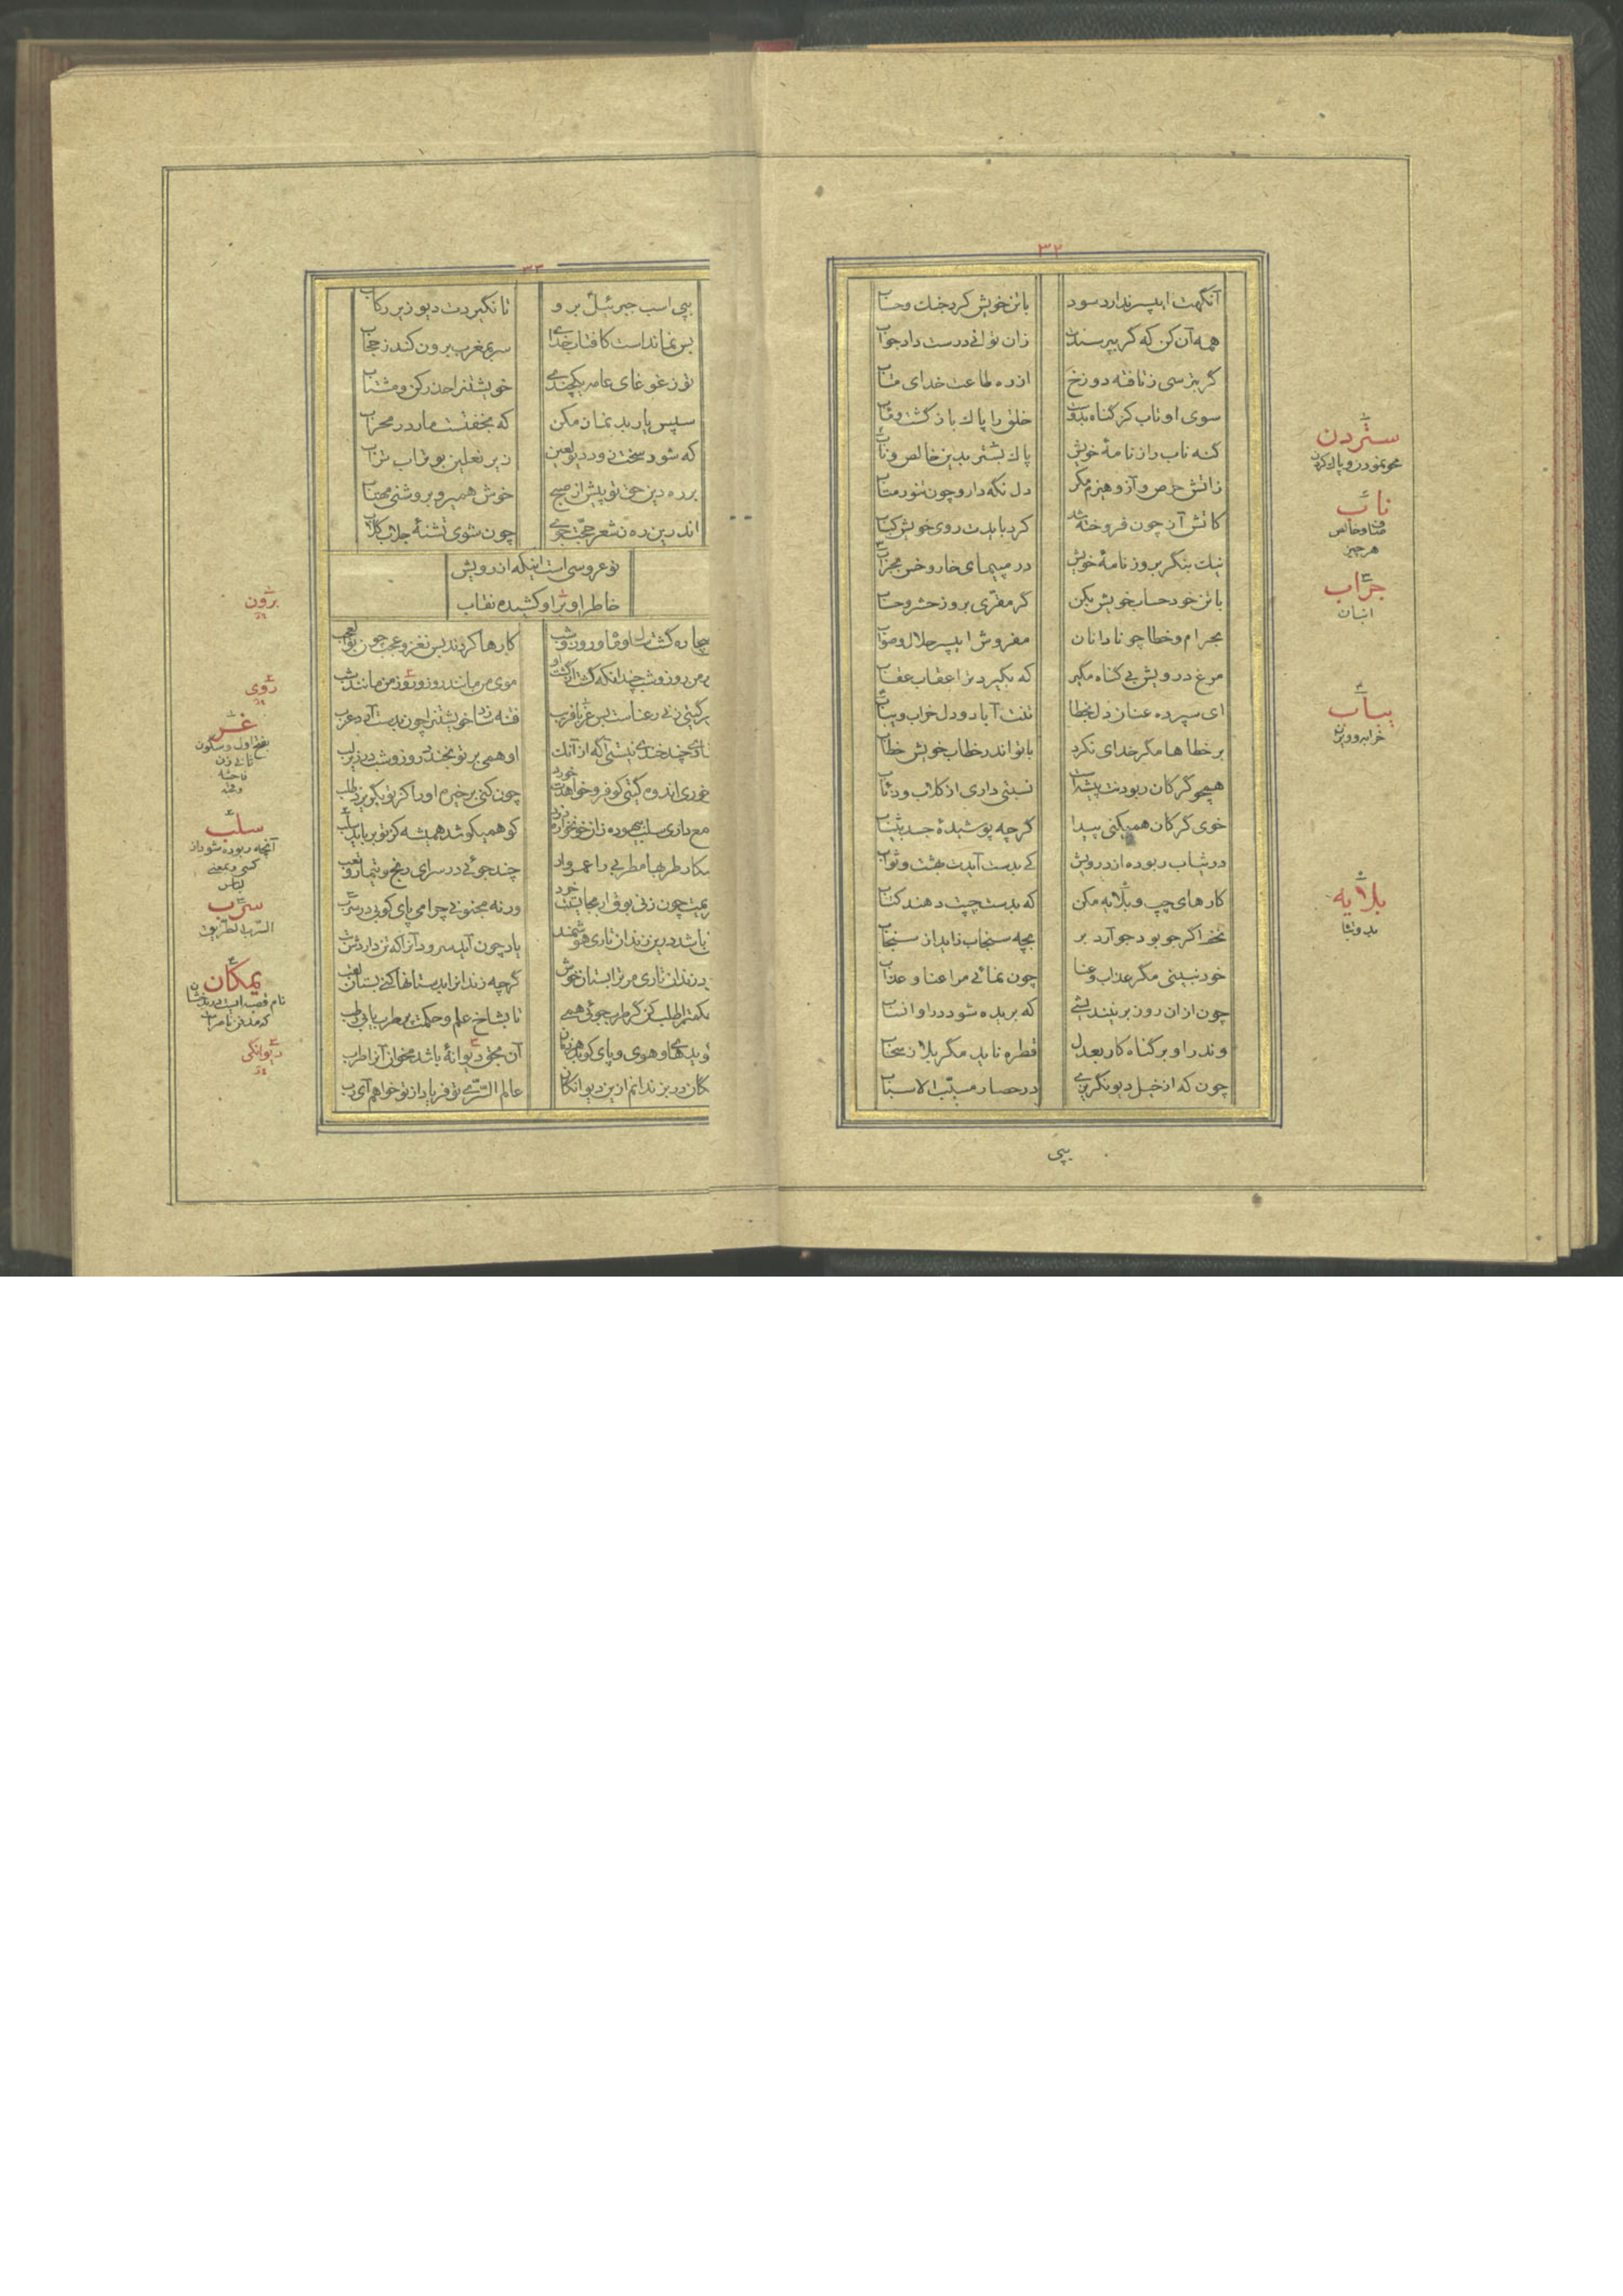 ۳۲
آنگهت ای پسر ندارد سود با تن خویش کرد جنگ و حساب
همه آن کن که گر بپرسندت زان توانی درست داد جواب
گر بترسی ز تافته دوزخ از ره طاعت خدای متاب
سوی او تاب کز گناه بدوست خلق را پاک بازگشت و مآب
گنه ناب را ز نامهٔ خویش پاک بستر بدین خالص و ناب
ز آتش حرص و آز و هیزم مکر دل نگه دار و چون تنور متاب
کآتش آز چون فروخته شد کرد بایدت روی خویش کباب
نیک بنگر بروزنامهٔ خویش در مپیمای خار و خس بجراب
با تن خود حساب خویش بکن گر مقری بروز حشر و حساب
بحرام و خطا چو نادانان مفروش ای پسر حلال و صواب
مرغ درویش بی گناه مگیر که بگیرد ترا عقاب عقاب
ای سپرده عنان دل بخطا تنت آباد و دل خراب و یباب
بر خطاها مگر خدای نکرد با تو اندر خطاب خویش خطاب
همچو گرگان ربودنت پیشه است نسبتی داری از کلاب و ذئاب
خوی گرگان همیکنی پیدا گرچه پوشیدهٔ جسد بثیاب
در ثیاب ربوده از درویش کی بدست آیدت بهشت و ثواب
کارهای چپ و بلایه مکن که بدست چپت دهند کتاب
تخم اگر جو بود جو آرد بر بچه سنجاب زاید از سنجاب
خود نبینی مگر عذاب و عنا چون نمائی مرا عنا و عذاب
چون از آن روز بر نیندیشی که بریده شود درو انساب
وندر او بر گناه کار بعدل قطره ناید مگر بلا ز سحاب
چون که از خیل دیو نگریزی در حصار مسبب الاسباب
پی
ستردن
محو نمودن و پاک کردن
ناب
صاف و خالص
هر چیز
جراب
انبان
یباب
خراب و ویران
بلایه
بد و تباه
۳۳
پی اسب جبرئیل برو تا نگیردت دیو زیر رکاب
بس نماند است کآفتاب خدای سر بمغرب برون کند ز حجاب
تو ز غوغای عامه یکچندی خویشتن را حذر کن و مشتاب
سپس یار بد نماز مکن که بخفتست مار در محراب
که شود سخت زود دیو لعین زیر نعلین بوتراب تراب
بر ره دین حق تو پیش از صبح خوش همیرو بروشنی مهتاب
اندرین ره ز شعر حجت جوی چون شوی تشنهٔ جلاب گلاب
نو عروسی است اینکه از رویش
خاطر او ترا و کشیده نقاب
کارها کردند بس نغز و عجب چون بوالعجب
من روز و شب چندانکه گشت او گشت او موی من مانند روز و توز من مانند شب
گیتی زنی رعناست بس غر با فریب فتنه سازد خویشتن را چون بدست آرد عرب
چند خندی نیستی آگه از آنک او همی بر تو بخندد روز و شب در زیر لب
خوری اندوه گیتی کو فرو خواهدت خورد چون کنی بر خیره او را کز تو بگریزد طلب
داری سلب بیهوده زان خونخواره دزد کو همیکوشد همیشه کز تو برباید سلب
طربها مطربی را عمرو وار چند جوئی در سرای رنج و تیمار و تعب
چون زنی بوق ار بجایست خرد ورنه مجنونی چرا می پای کوبی در سرب
باشد درین زندان تاری هوشمند یاد چون آید سرود آنرا که تن داردش تب
زندان تاری مر ترا بستان خوش گرچه زندانرا بدستانها کنی بستان لقب
حکمت را طلب کن گر طرب جوئی همی تا بشاخ علم و حکمت پر طرب یابی رطب
گوید های و هوی و پای کوبد هر زمان آن بخود دیوانهٔ باشد مخوان آنرا طرب
در بزندانم ازین دیوانگان عالم السری تو فریاد از تو خواهم آی رب
برون
روی
غر
بفتح اول و سکون
ثانی زن
فاحشه
سلب
آنچه ربوده شود از
کسی و بمعنی
لباس
سرب
السرب الطریق
یمکان
نام قصبه است در بدخشان
که مدفن ناصر است
دیوانگی